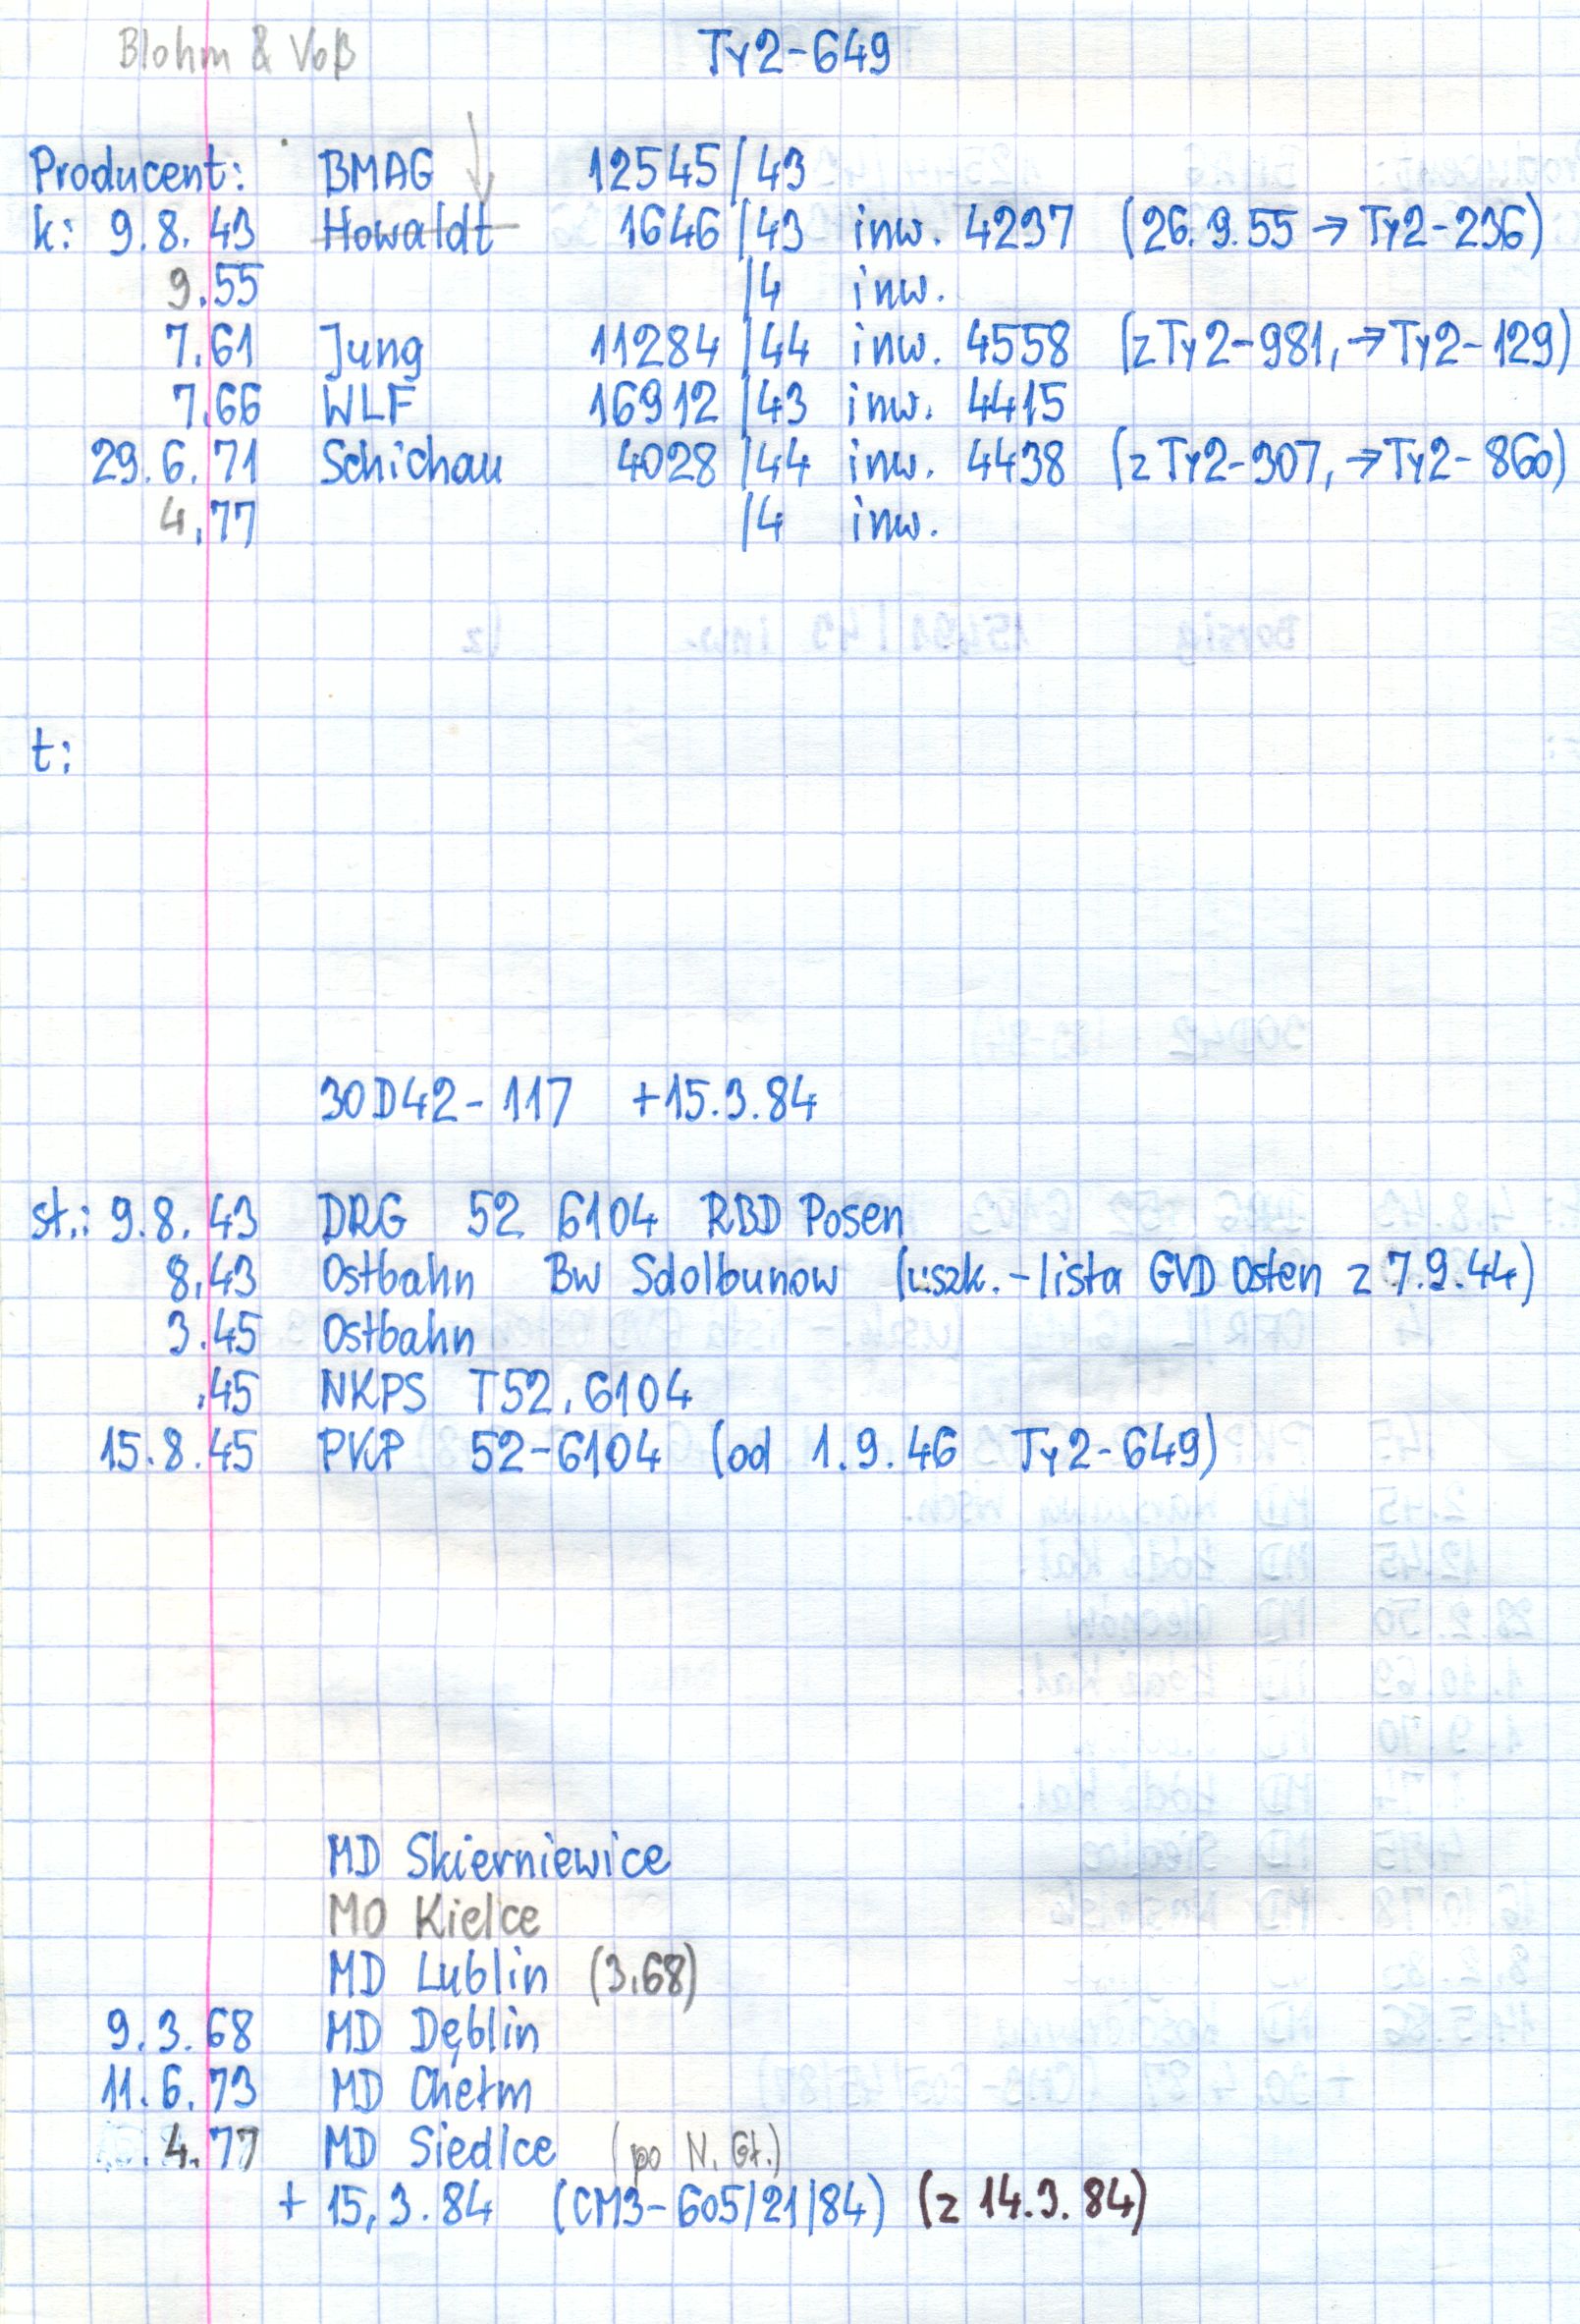 Blohm & Voß Ty2-649
Producent: BMAG 12545/43
k: 9.8.43 Howaldt 1646/43 inw. 4237 (26.9.55 → Ty2-236)
9.55 /4 inw.
7.61 Jung 11284/44 inw. 4558 (z Ty2-981, → Ty2-129)
7.66 WLF 16912/43 inw. 4415
29.6.71 Schichau 4028/44 inw. 4438 (z Ty2-307, → Ty2-860)
4.77 /4 inw.
t:
30D42-117 +15.3.84
st.: 9.8.43 DRG 52 6104 RBD Posen
8.43 Ostbahn Bw Sdolbunow (uszk. - lista GVD Osten z 7.9.44)
3.45 Ostbahn
.45 NKPS T52.6104
15.8.45 PKP 52-6104 (od 1.9.46 Ty2-649)
MD Skierniewice
MD Kielce
MD Lublin (3.68)
9.3.68 MD Dęblin
11.6.73 MD Chełm
4.77 MD Siedlce (po N. Gł.)
+ 15.3.84 (CM3-605/21/84) (z 14.3.84)